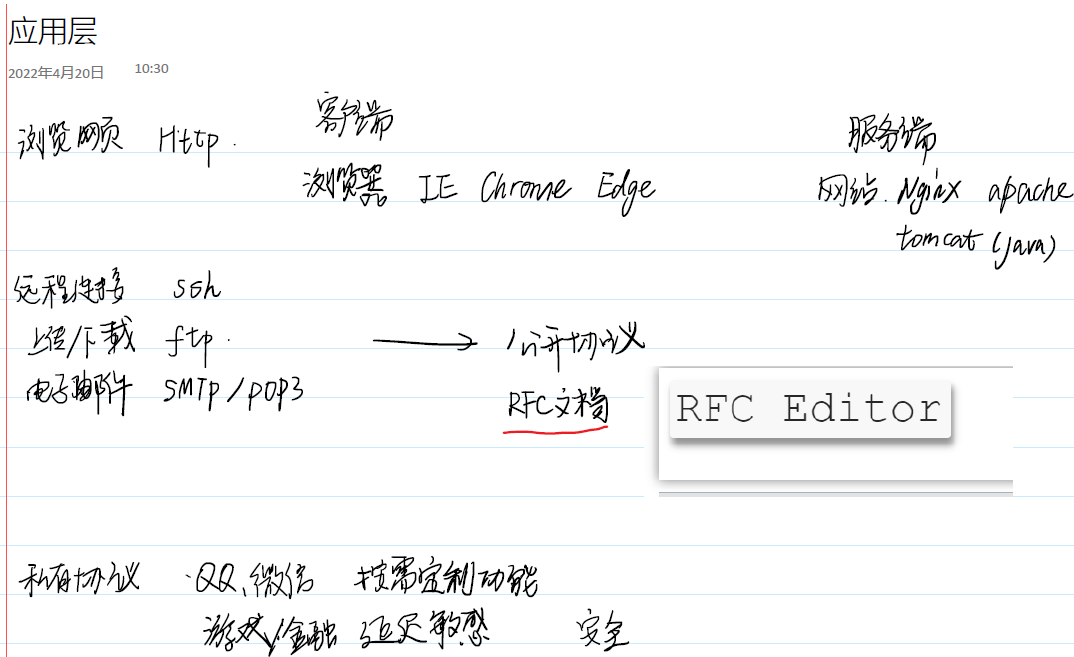 应用层
2022年4月20日 10:30
客户端 服务端
浏览网页 Http.
浏览器 IE Chrome Edge 网站. Nginx apache
tomcat (java)
远程连接 ssh
上传/下载 ftp. → 公开协议
电子邮件 SMTP/POP3 RFC文档
RFC Editor
私有协议 ·QQ、微信 按需定制功能
游戏/金融 延迟敏感 安全